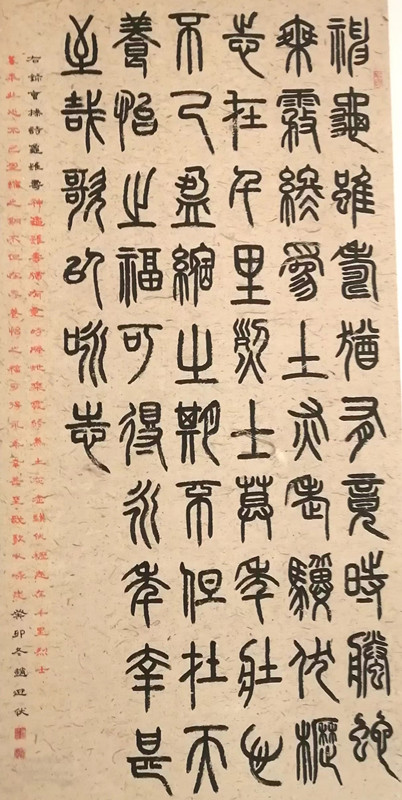 神龜雖壽猶有竟時騰蛇
乘霧終為土灰老驥伏櫪
志在千里烈士莫年壯心
不已盈縮之期不但在天
養怡之福可得永年幸甚
至哉歌以詠志
右錄曹操詩龜雖壽 神龜雖壽猶有竟時騰蛇乘霧終為土灰老驥伏櫪志在千里烈士
暮年壯心不已盈縮之期不但在天養怡之福可得永年幸甚至哉歌以詠志 癸卯冬趙